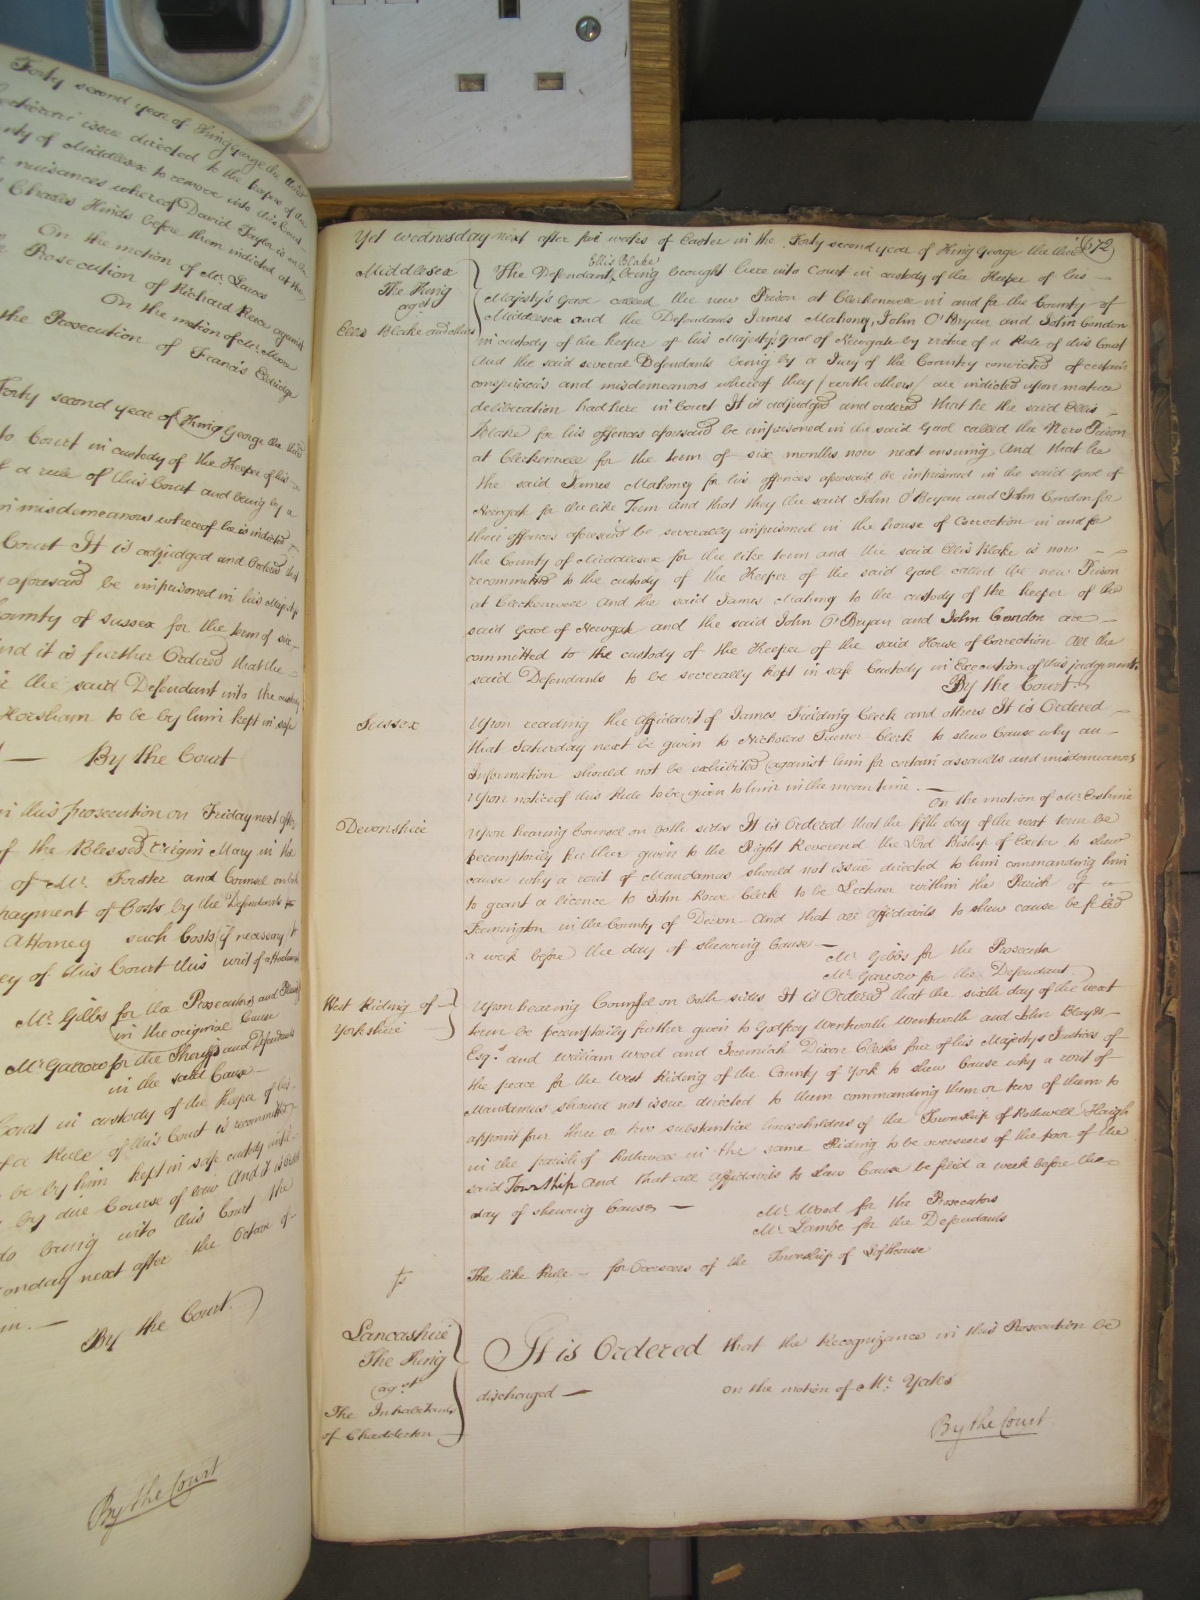 Forty second year of King George the third
issue directed to the keeper of
County of Middlesex to remove into this Court
nuisances whereof David Taylor is
Charles Hinds before them indicted at the
On the motion of Mr. Lawes
Prosecution of Richard Reece against
On the motion of Mr. Moore
the Prosecution of Francis Eldridge
Forty second year of King George the third
to Court in custody of the Keeper of his
of a rule of this Court and being by a
misdemeanours whereof he is indicted
Court It is adjudged and Ordered that
aforesaid be imprisoned in his Majesty's
County of Sussex for the term of six
And it is further Ordered that the
the said Defendant into the custody
Horsham to be by him kept in safe
By the Court
in this prosecution on Friday next after
of the Blessed Virgin Mary in the
of Mr. Forster and Counsel on both
payment of Costs by the Defendants
Attorney such Costs if necessary to
of this Court this writ of Attachment
Mr. Gibbs for the Prosecutors and Plaintiff
in the original Cause
Mr Garrow for the Sheriff and Defendants
in the said Cause
Court in custody of the keeper of his
of a Rule of this Court is recommitted
be by him kept in safe custody until
by due Course of law And it is Ordered
do bring into this Court the
Monday next after the Octave of
By the Court
By the Court
Yet wednesday next after five weeks of Easter in the Forty second year of King George the third 672
Middlesex
The King
agst
Ellis Blake and others
The Defendant Ellis Blake being brought here into Court in custody of the Keeper of his
Majesty's Gaol called the new Prison at Clerkenwell in and for the County of
Middlesex and the Defendants James Mahoney, John O'Bryan and John Condon
in custody of the keeper of his Majesty's gaol of Newgate by virtue of a Rule of this Court
And the said several Defendants being by a Jury of the Country convicted of certain
conspiracies and misdemeanors whereof they (with others) are indicted upon mature
deliberation had here in Court It is adjudged and ordered that he the said Ellis
Blake for his offences aforesaid be imprisoned in the said Gaol called the New Prison
at Clerkenwell for the term of six months now next ensuing And that he
the said James Mahoney for his offences aforesaid be imprisoned in the said Gaol of
Newgate for the like Term And that they the said John O'Bryan and John Condon for
their offences aforesaid be severally imprisoned in the house of Correction in and for
the County of Middlesex for the like term and the said Ellis Blake is now
recommitted to the custody of the Keeper of the said Gaol called the new Prison
at Clerkenwell And the said James Mahony to the custody of the keeper of the
said Gaol of Newgate and the said John O'Bryan and John Condon are
committed to the custody of the Keeper of the said House of Correction All the
said Defendants to be severally kept in safe Custody in Execution of this judgement
By the Court
Sussex
Upon reading the affidavit of James Fielding Clerk and others It is Ordered
that Saturday next be given to Nicholas Turner Clerk to shew Cause why an
Information should not be exhibited against him for certain assaults and misdemeanors
Upon notice of this Rule to be given to him in the mean time
On the motion of Mr. Erskine
Devonshire
Upon hearing Counsel on both sides It is Ordered that the fifth day of the next term be
peremptorily further given to the Right Reverend the Lord Bishop of Exeter to shew
cause why a writ of Mandamus should not issue directed to him commanding him
to grant a licence to John Rowe Clerk to be Lecturer within the Parish of
in the County of Devon And that all affidavits to shew cause be filed
a week before the day of shewing Cause
Mr. Gibbs for the Prosecutor
Mr. Garrow for the Defendant
West Riding of
Yorkshire
Upon hearing Counsel on both sides It is Ordered that the sixth day of the next
term be peremptorily further given to Godfrey Wentworth Wentworth and John Blayds
Esqrs and William Wood and Jeremiah Dixon Clerks four of his Majestys Justices of
the peace for the West Riding of the County of York to shew Cause why a writ of
Mandamus should not issue directed to them commanding them or two of them to
appoint four three or two substantial householders of the Township of Rothwell Haigh
in the parish of Rothwell in the same Riding to be overseers of the poor of the
said Township And that all affidavits to shew Cause be filed a week before the
day of shewing Cause
Mr. Wood for the Prosecutors
Mr. Lambe for the Defendants
The like Rule for Overseers of the Township of Lofthouse
Lancashire
The King
agst
The Inhabitants
of Chadderton
It is Ordered that the Recognizance in this Prosecution be
discharged
On the motion of Mr. Yates
By the Court